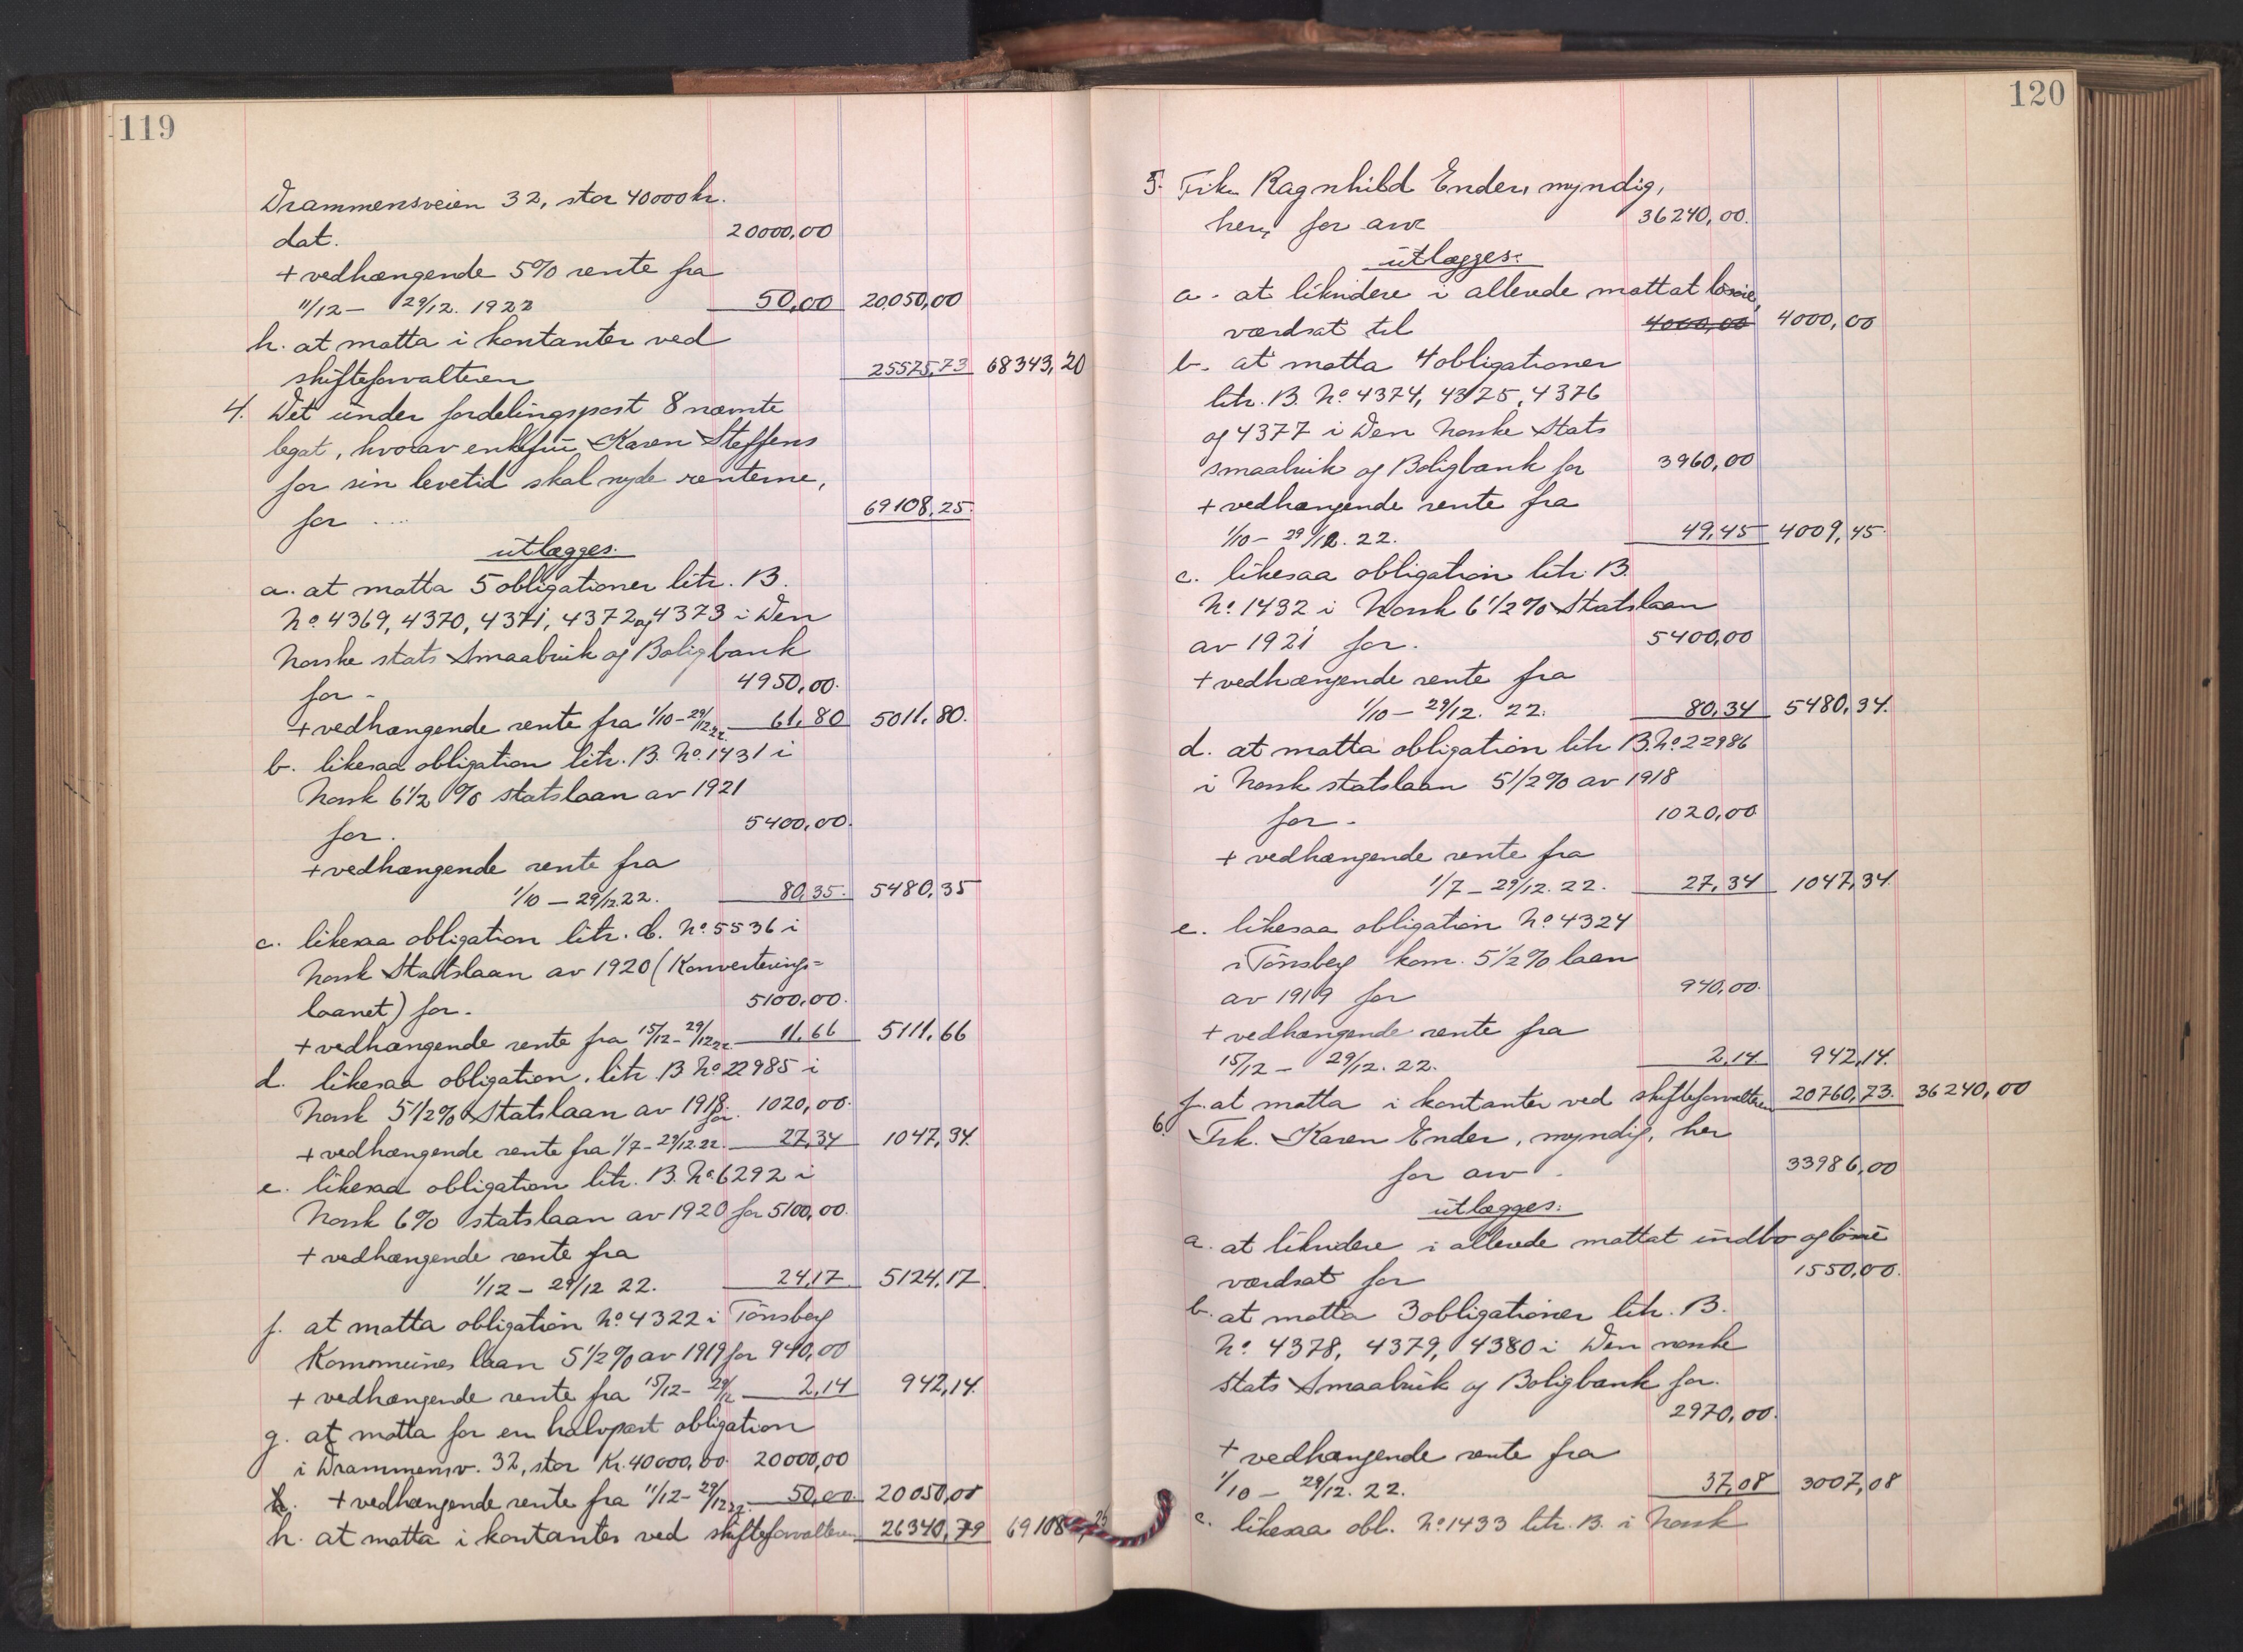 119
Drammensveien 32, stor 40000 kr.
dat. 20000,00
+ vedhængende 5% rente fra
11/12 - 29/12. 1922 50,00 20050,00
h. at motta i kontanter ved
skifteforvalteren 25575,73 68343,20
4. Det under fordelingspost 8 nævnte
legat, hvorav enkefru Karen Steffens
for sin levetid skal nyde renterne,
for .... 69108,25.
utlægges.
a. at motta 5 obligationer litr. B.
No. 4369, 4370, 4371, 4372 og 4373 i Den
Norske stats Smaabruk og Boligbank
for - 4950,00.
+ vedhængende rente fra 1/10 - 29/12.22. 61,80 5011,80.
b. likesaa obligation litr. B. No. 1431 i
Norsk 6 1/2 % statslaan av 1921
for. 5400,00.
+ vedhængende rente fra
1/10 - 29/12.22. 80,35. 5480,35
c. likesaa obligation litr. d. No. 5536 i
Norsk Statslaan av 1920 (Konverterings=
laanet) for. 5100,00.
+ vedhængende rente fra 15/12 - 29/12 22 11,66 5111,66
d. likesaa obligation, litr. B No 22985 i
Norsk 5 1/2% Statslaan av 1918 for. 1020,00.
+ vedhængende rente fra 1/7 - 29/12.22. 27,34 1047,34.
e. likesaa obligation litr. B. No. 6292 i
Norsk 6% statslaan av 1920 for 5100,00.
+ vedhængende rente fra
1/12 - 29/12 22. 24,17. 5124,17.
f. at motta obligation No. 4322 i Tönsberg
Kommunes laan 5 1/2% av 1919 for 940,00
+ vedhængende rente fra 15/12 - 29/12 2,14 942,14.
g. at motta for en halvpart obligation
i Drammensv. 32, stor Kr. 40000,00. 20000,00
+ vedhængende rente fra 11/12 - 29/12 22. 50,00. 20050,00
h. at motta i kontanter ved skifteforvalteren 26340,79 69108,25
120
5. Frk. Ragnhild Ender, myndig,
her, for arv 36240,00.
utlægges:
a. at likvidere i allerede mottat lösöre,
værdsat til 4000,00 4000,00
b. at motta 4 obligationer
litr. B. No 4374, 4375, 4376
og 4377 i Den Norske Stats
smaabruk og Boligbank for 3960,00
+ vedhængende rente fra
1/10 - 29/12. 22. 49,45 4009,45.
c. likesaa obligation litr. B.
No. 1432 i Norsk 6 1/2% Statslaan
av 1921 for. 5400,00
+ vedhængende rente fra
1/10 - 29/12. 22. 80,34 5480,34.
d. at motta obligation litr B. No 22986
i Norsk statslaan 5 1/2% av 1918
for. 1020,00
+ vedhængende rente fra
1/7 - 29/12. 22. 27,34 1047,34.
e. likesaa obligation No. 4324
i Tönsberg kom. 5 1/2% laan
av 1919 for 940,00.
+ vedhængende rente fra
15/12 - 29/12. 22. 2,14. 942,14.
f. at motta i kontanter ved skifteforvalteren 20760,73. 36240,00
6. Frk. Karen Ender, myndig, her
for arv. 33986,00
utlægges:
a. at likvidere i allerede mottat indbo og lösöre
værdsat for 1550,00.
b. at motta 3 obligationer litr. B.
No. 4378, 4379, 4380 i Den norske
stats Smaabruk og Boligbank for.
2970,00.
+ vedhængende rente fra
1/10 - 29/12. 22. 37,08 3007,08
c. likesaa obl. No. 1433 litr. B. i Norsk